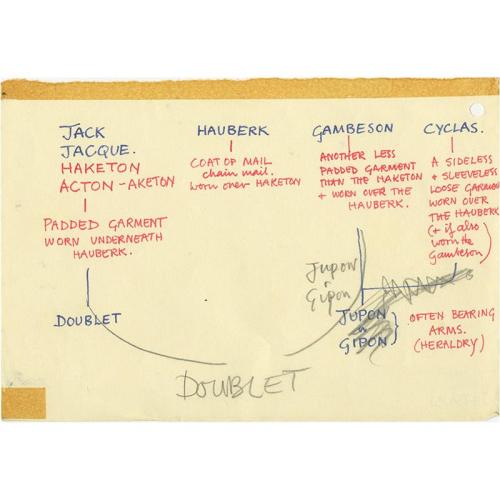 JACK
JACQUE.
HAKETON
ACTON - AKETON
PADDED GARMENT
WORN UNDERNEATH
HAUBERK.
DOUBLET
HAUBERK
COAT OF MAIL
chain mail.
worn over HAKETON
GAMBESON
ANOTHER LESS
PADDED GARMENT
THAN THE HAKETON
+ WORN OVER THE
HAUBERK.
CYCLAS.
A SIDELESS
+ SLEEVELESS
LOOSE GARMENT
WORN OVER
THE HAUBERK
(+ if also
worn the
Gambeson)
Jupon
Gipon
JUPON
GIPON
OFTEN BEARING
ARMS.
(HERALDRY)
DOUBLET